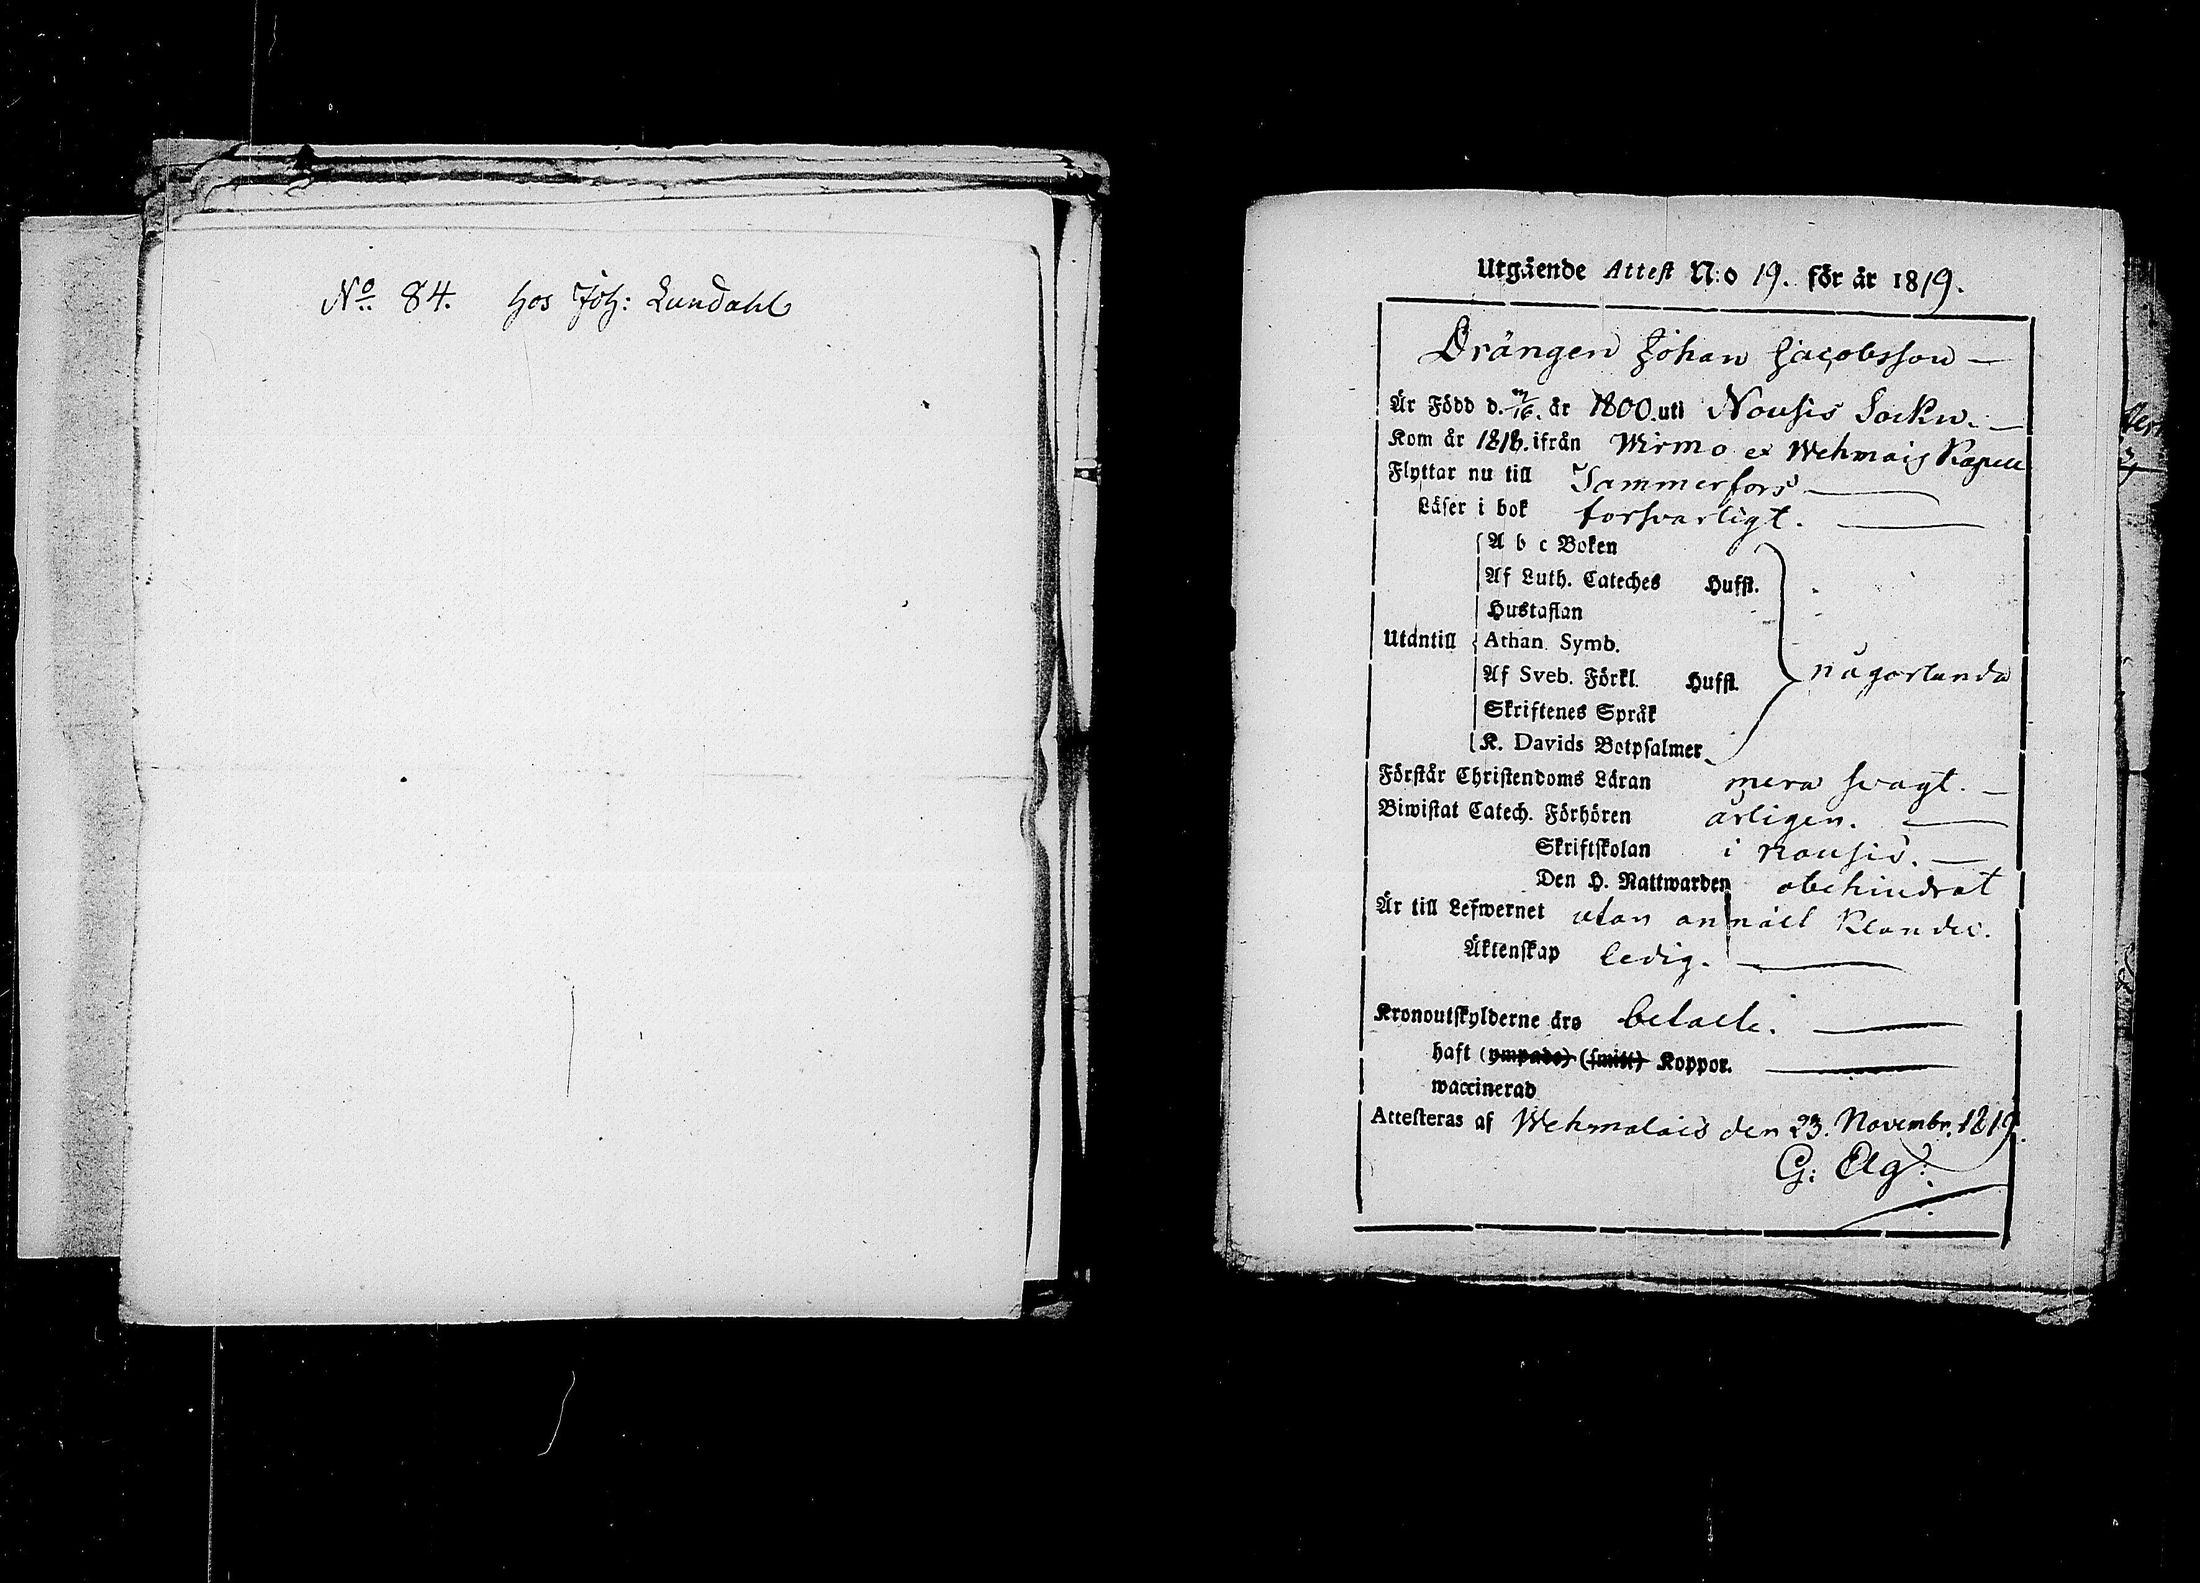 No 84. hos Joh: Lundahl
Utgående Attest N:o 19. för år 1819.
Drängen Johan Jacobsson
Är Född d. /16. år 1800. uti Nousis Sockn.
Kom år 1818. ifrån Wirmo et Wehmais Kapell
Flyttar nu till Tammerfors
Läser i bok forsvarligt.
A b c Boken
Af Luth. Cateches Hufst.
Hustaflan
Utantill Athan. Symb.
Af Sveb. Förkl. Hufst. någorlunda
Skriftenes Språk
K. Davids Botpsalmer
Förstår Christendoms Läran mera swagt.
Biwistat Catech. Förhören årligen.
Skriftskolan i Nousis.
Den H. Nattwarden obehindrat
Är till Lefwernet utan anmält Klander.
Äktenskap ledig.
Kronoutskylderne äro betalte.
haft (ympade) (smitt) Koppor.
waccinerad
Attesteras af Wehmalais den 23. Novembr. 1819.
G: Elg: